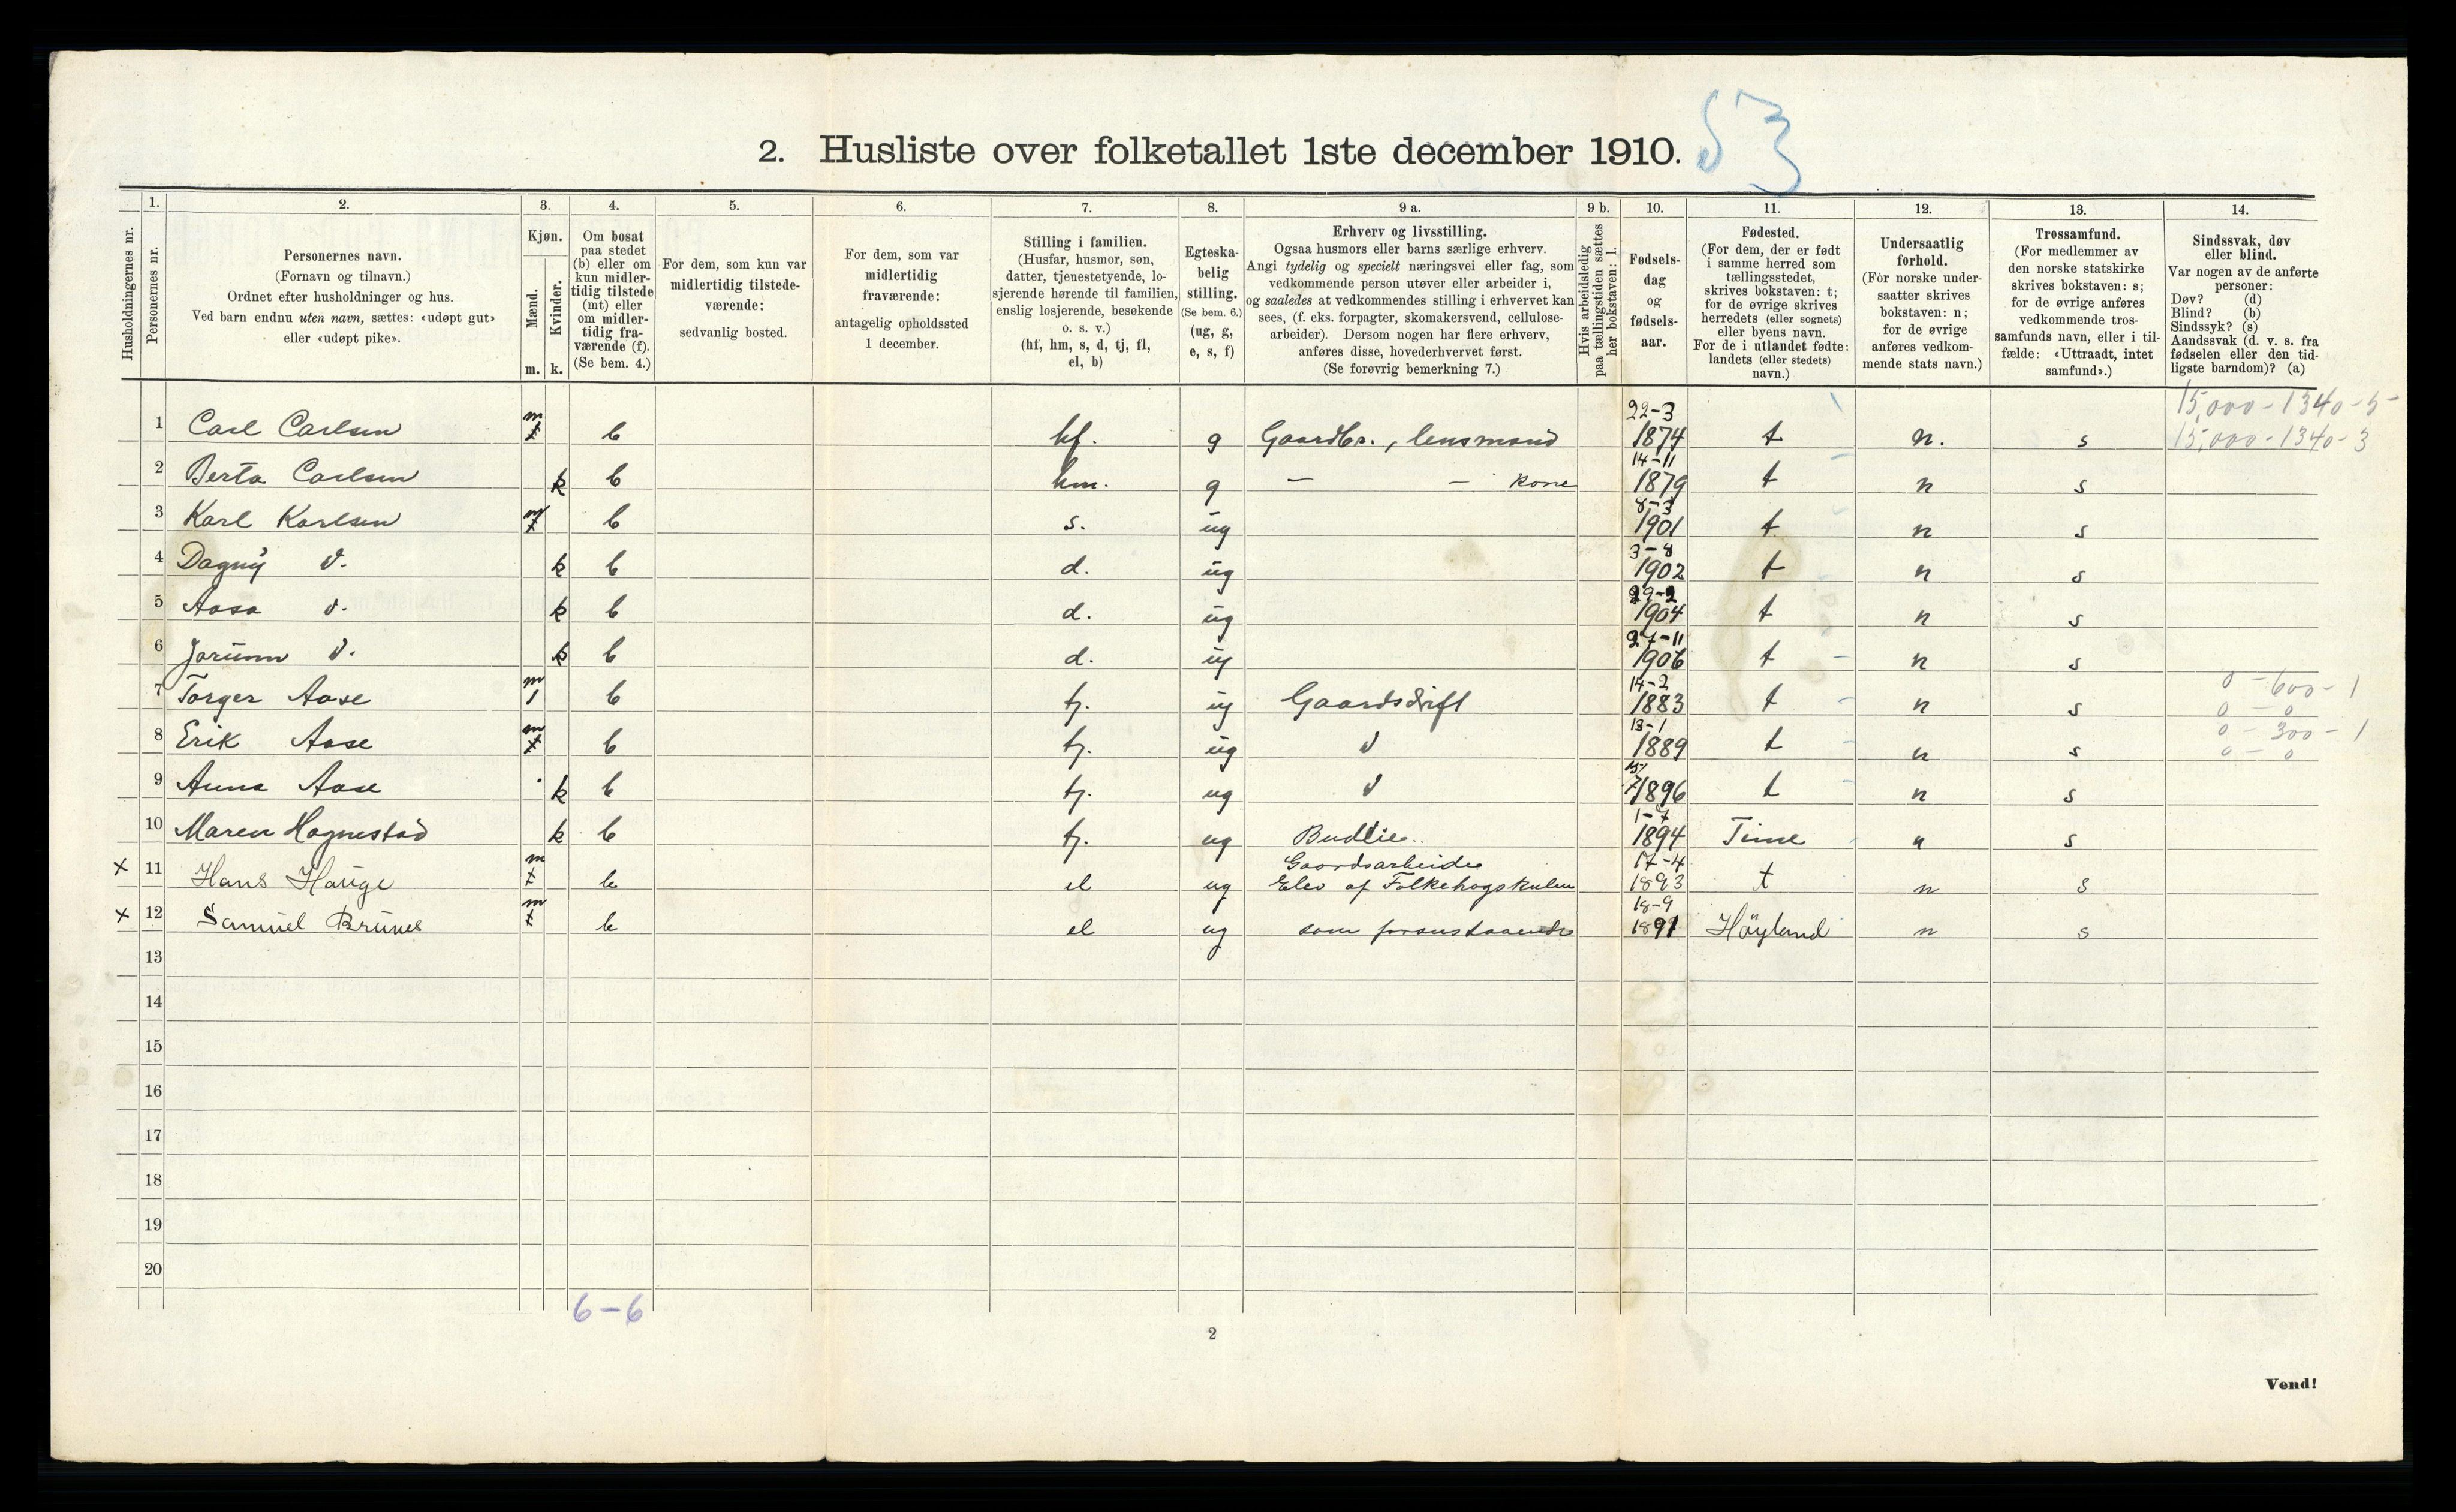 2. Husliste over folketallet 1ste december 1910. 53
1. 2. 3. 4. 5. 6. 7. 8. 9 a. 9 b. 10. 11. 12. 13. 14.
Husholdningernes nr.
Personernes nr.
Personernes navn.
(Fornavn og tilnavn.)
Ordnet efter husholdninger og hus.
Ved barn endnu uten navn, sættes: «udøpt gut»
eller «udøpt pike».
Kjøn.
Mænd.
Kvinder.
m. k.
Om bosat
paa stedet
(b) eller om
kun midler-
tidig tilstede
(mt) eller
om midler-
tidig fra-
værende (f).
(Se bem. 4.)
For dem, som kun var
midlertidig tilstede-
værende:
sedvanlig bosted.
For dem, som var
midlertidig
fraværende:
antagelig opholdssted
1 december.
Stilling i familien.
(Husfar, husmor, søn,
datter, tjenestetyende, lo-
sjerende hørende til familien,
enslig losjerende, besøkende
o. s. v.)
(hf, hm, s, d, tj, fl,
el, b)
Egteska-
belig
stilling.
(Se bem. 6.)
(ug, g,
e, s, f)
Erhverv og livsstilling.
Ogsaa husmors eller barns særlige erhverv.
Angi tydelig og specielt næringsvei eller fag, som
vedkommende person utøver eller arbeider i,
og saaledes at vedkommendes stilling i erhvervet kan
sees, (f. eks. forpagter, skomakersvend, cellulose-
arbeider). Dersom nogen har flere erhverv,
anføres disse, hovederhvervet først.
(Se forøvrig bemerkning 7.)
Hvis arbeidsledig
paa tællingstiden sættes
her bokstaven: l.
Fødsels-
dag
og
fødsels-
aar.
Fødested.
(For dem, der er født
i samme herred som
tællingsstedet,
skrives bokstaven: t;
for de øvrige skrives
herredets (eller sognets)
eller byens navn.
For de i utlandet fødte:
landets (eller stedets)
navn.)
Undersaatlig
forhold.
(For norske under-
saatter skrives
bokstaven: n;
for de øvrige
anføres vedkom-
mende stats navn.)
Trossamfund.
(For medlemmer av
den norske statskirke
skrives bokstaven: s;
for de øvrige anføres
vedkommende tros-
samfunds navn, eller i til-
fælde: «Uttraadt, intet
samfund».)
Sindssvak, døv
eller blind.
Var nogen av de anførte
personer:
Døv? (d)
Blind? (b)
Sindssyk? (s)
Aandssvak (d. v. s. fra
fødselen eller den tid-
ligste barndom)? (a)
15,000 - 1340 - 5 -
1 Carl Carlsen m b hf. g Gaardbr., lensmand 22-3 1874 t n. s 15,000 - 1340 - 3
2 Berta Carlsen k b hm. g — — kone 14-11 1879 t n s
3 Karl Karlsen m b s. ug 8-3 1901 t n s
4 Dagny d. k b d. ug 3-8 1902 t n s
5 Aasa d. k b d. ug 29-2 1904 t n s
6 Jorunn d. k b d. ug 27-11 1906 t n s
7 Torger Aase m b tj. ug Gaardsdrift 14-2 1883 t n s 0 - 600 - 1
0 - 0
8 Erik Aase m b tj. ug d 13-1 1889 t n s 0 - 300 - 1
0 - 0
9 Anna Aase k b tj. ug d 15/7 1896 t n s
10 Maren Hognestad k b tj. ug Budeie.. 1-7 1894 Time n s
x 11 Hans Hauge m b el ug Gaardsarbeider
Elev af Folkehøgskulen 17-4 1893 t n s
x 12 Samuel Brunes m b el ug som foranstaaende 18-9 1891 Höyland n s
13
14
15
16
17
18
19
20
6 - 6
2
Vend!